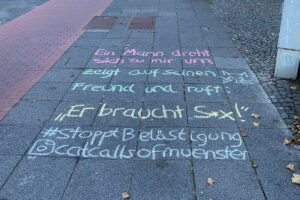 Ein Mann dreht
sich zu mir um
zeigt auf seinen
Freund und ruft
„Er braucht S*x!"
#StopptBelästigung
@catcallsofmuenster